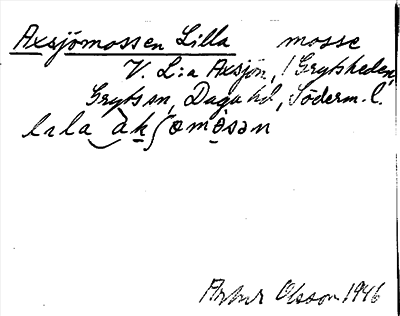 Axsjömossen Lilla mosse
V. L:a Axsjön, / Grytsheden,
Gryts sn, Daga hd, Söderm. l.
lıla ak∫ømosən
Artur Olsson 1946